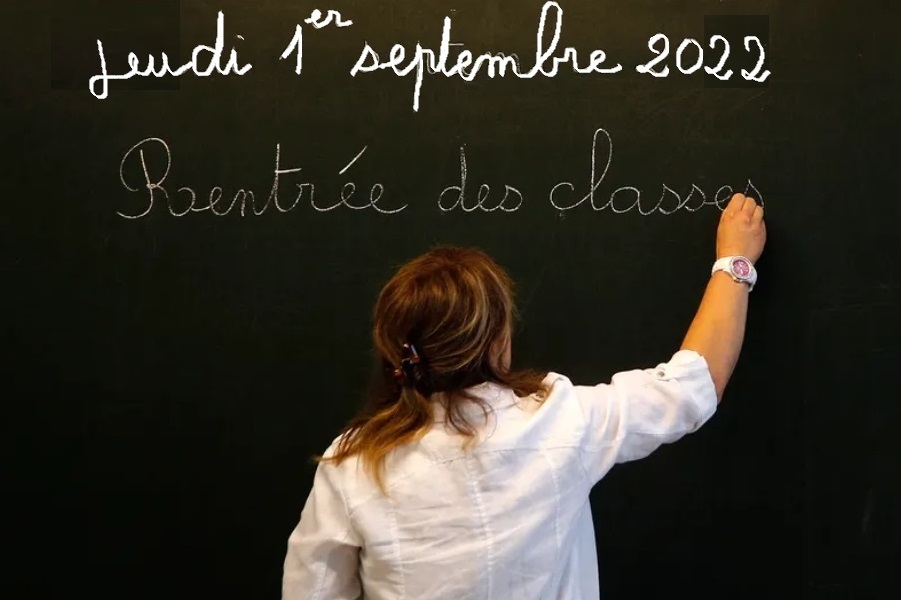 Jeudi 1er septembre 2022
Rentrée des classes